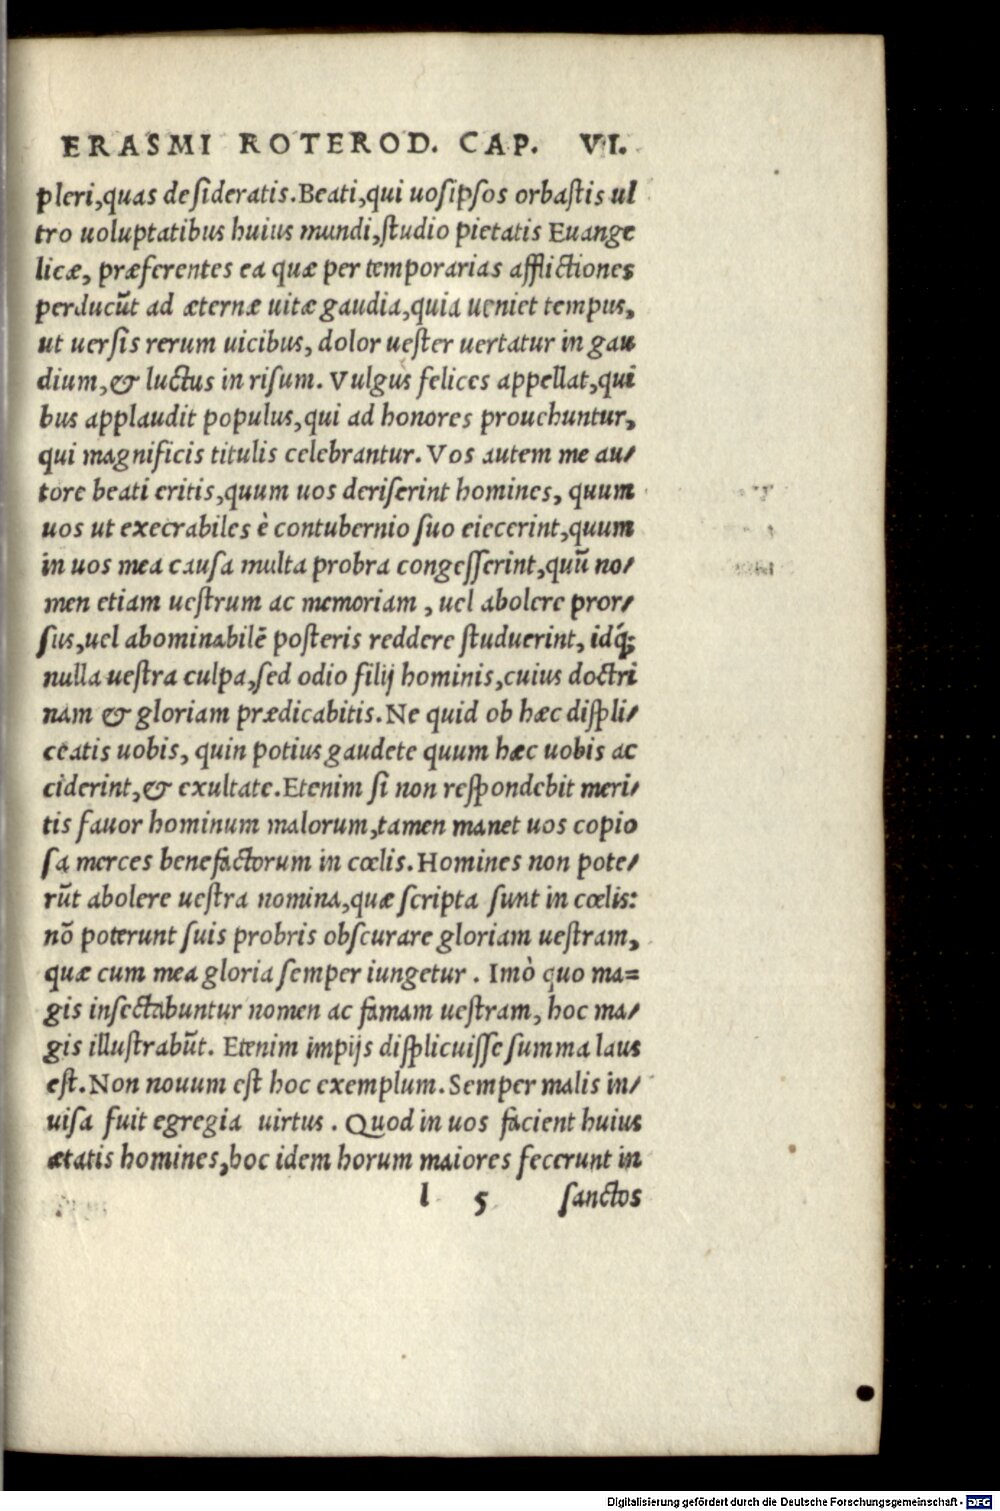 ERASMI ROTEROD. CAP. VI.
pleri,quas desideratis.Beati,qui uosipsos orbastis ul
tro uoluptatibus huius mundi,studio pietatis Euange
licæ, præferentes ea quæ per temporarias afflictiones
perducũt ad æternæ uitæ gaudia,quia ueniet tempus,
ut uersis rerum uicibus, dolor uester uertatur in gau
dium,& luctus in risum. Vulgus felices appellat,qui
bus applaudit populus,qui ad honores prouehuntur,
qui magnificis titulis celebrantur. Vos autem me au/
tore beati eritis,quum uos deriserint homines, quum
uos ut execrabiles è contubernio suo eiecerint,quum
in uos mea causa multa probra congesserint,quũ no/
men etiam uestrum ac memoriam , uel abolere pror/
sus,uel abominabilẽ posteris reddere studuerint, idq́;
nulla uestra culpa,sed odio filij hominis,cuius doctri
nam & gloriam prædicabitis.Ne quid ob hæc displi/
ceatis uobis, quin potius gaudete quum hæc uobis ac
ciderint,& exultate.Etenim si non respondebit meri/
tis fauor hominum malorum,tamen manet uos copio
sa merces benefactorum in cœlis.Homines non pote/
rũt abolere uestra nomina,quæ scripta sunt in cœlis:
nõ poterunt suis probris obscurare gloriam uestram,
quæ cum mea gloria semper iungetur . Imò quo ma=
gis insectabuntur nomen ac famam uestram, hoc ma/
gis illustrabũt. Etenim impijs displicuisse summa laus
est.Non nouum est hoc exemplum.Semper malis in/
uisa fuit egregia uirtus . Quod in uos facient huius
ætatis homines,hoc idem horum maiores fecerunt in
l 5 sanctos
Digitalisierung gefördert durch die Deutsche Forschungsgemeinschaft - DFG